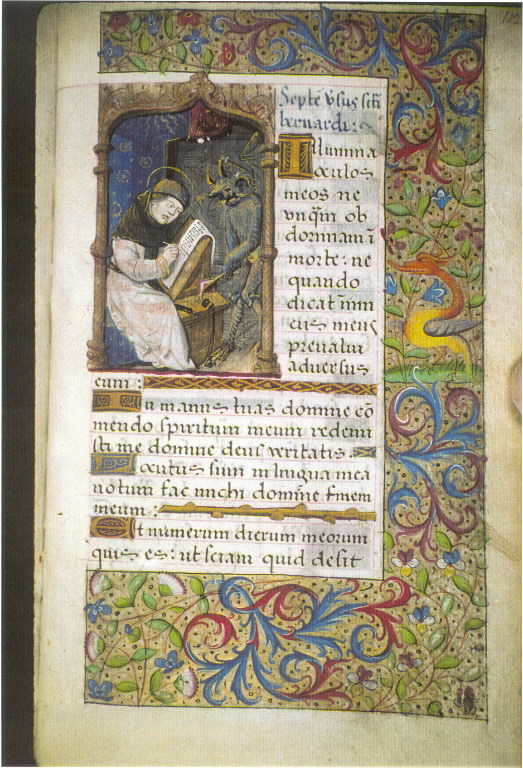 Septē v̄sus sēti
bernardi:
Illumina
oculos
meos ne
vnq̄m ob
dormiam ī
morte: ne
quando
dicat īnim
cus meus
preualui
aduersus
eum:
In manus tuas domine cō
mendo spiritum meum redemi
sti me domine deus veritatis.
Locutus sum in lingua mea
notum fac michi domine finem
meum:
Et numerum dierum meorum
quis es: ut sciam quid desit